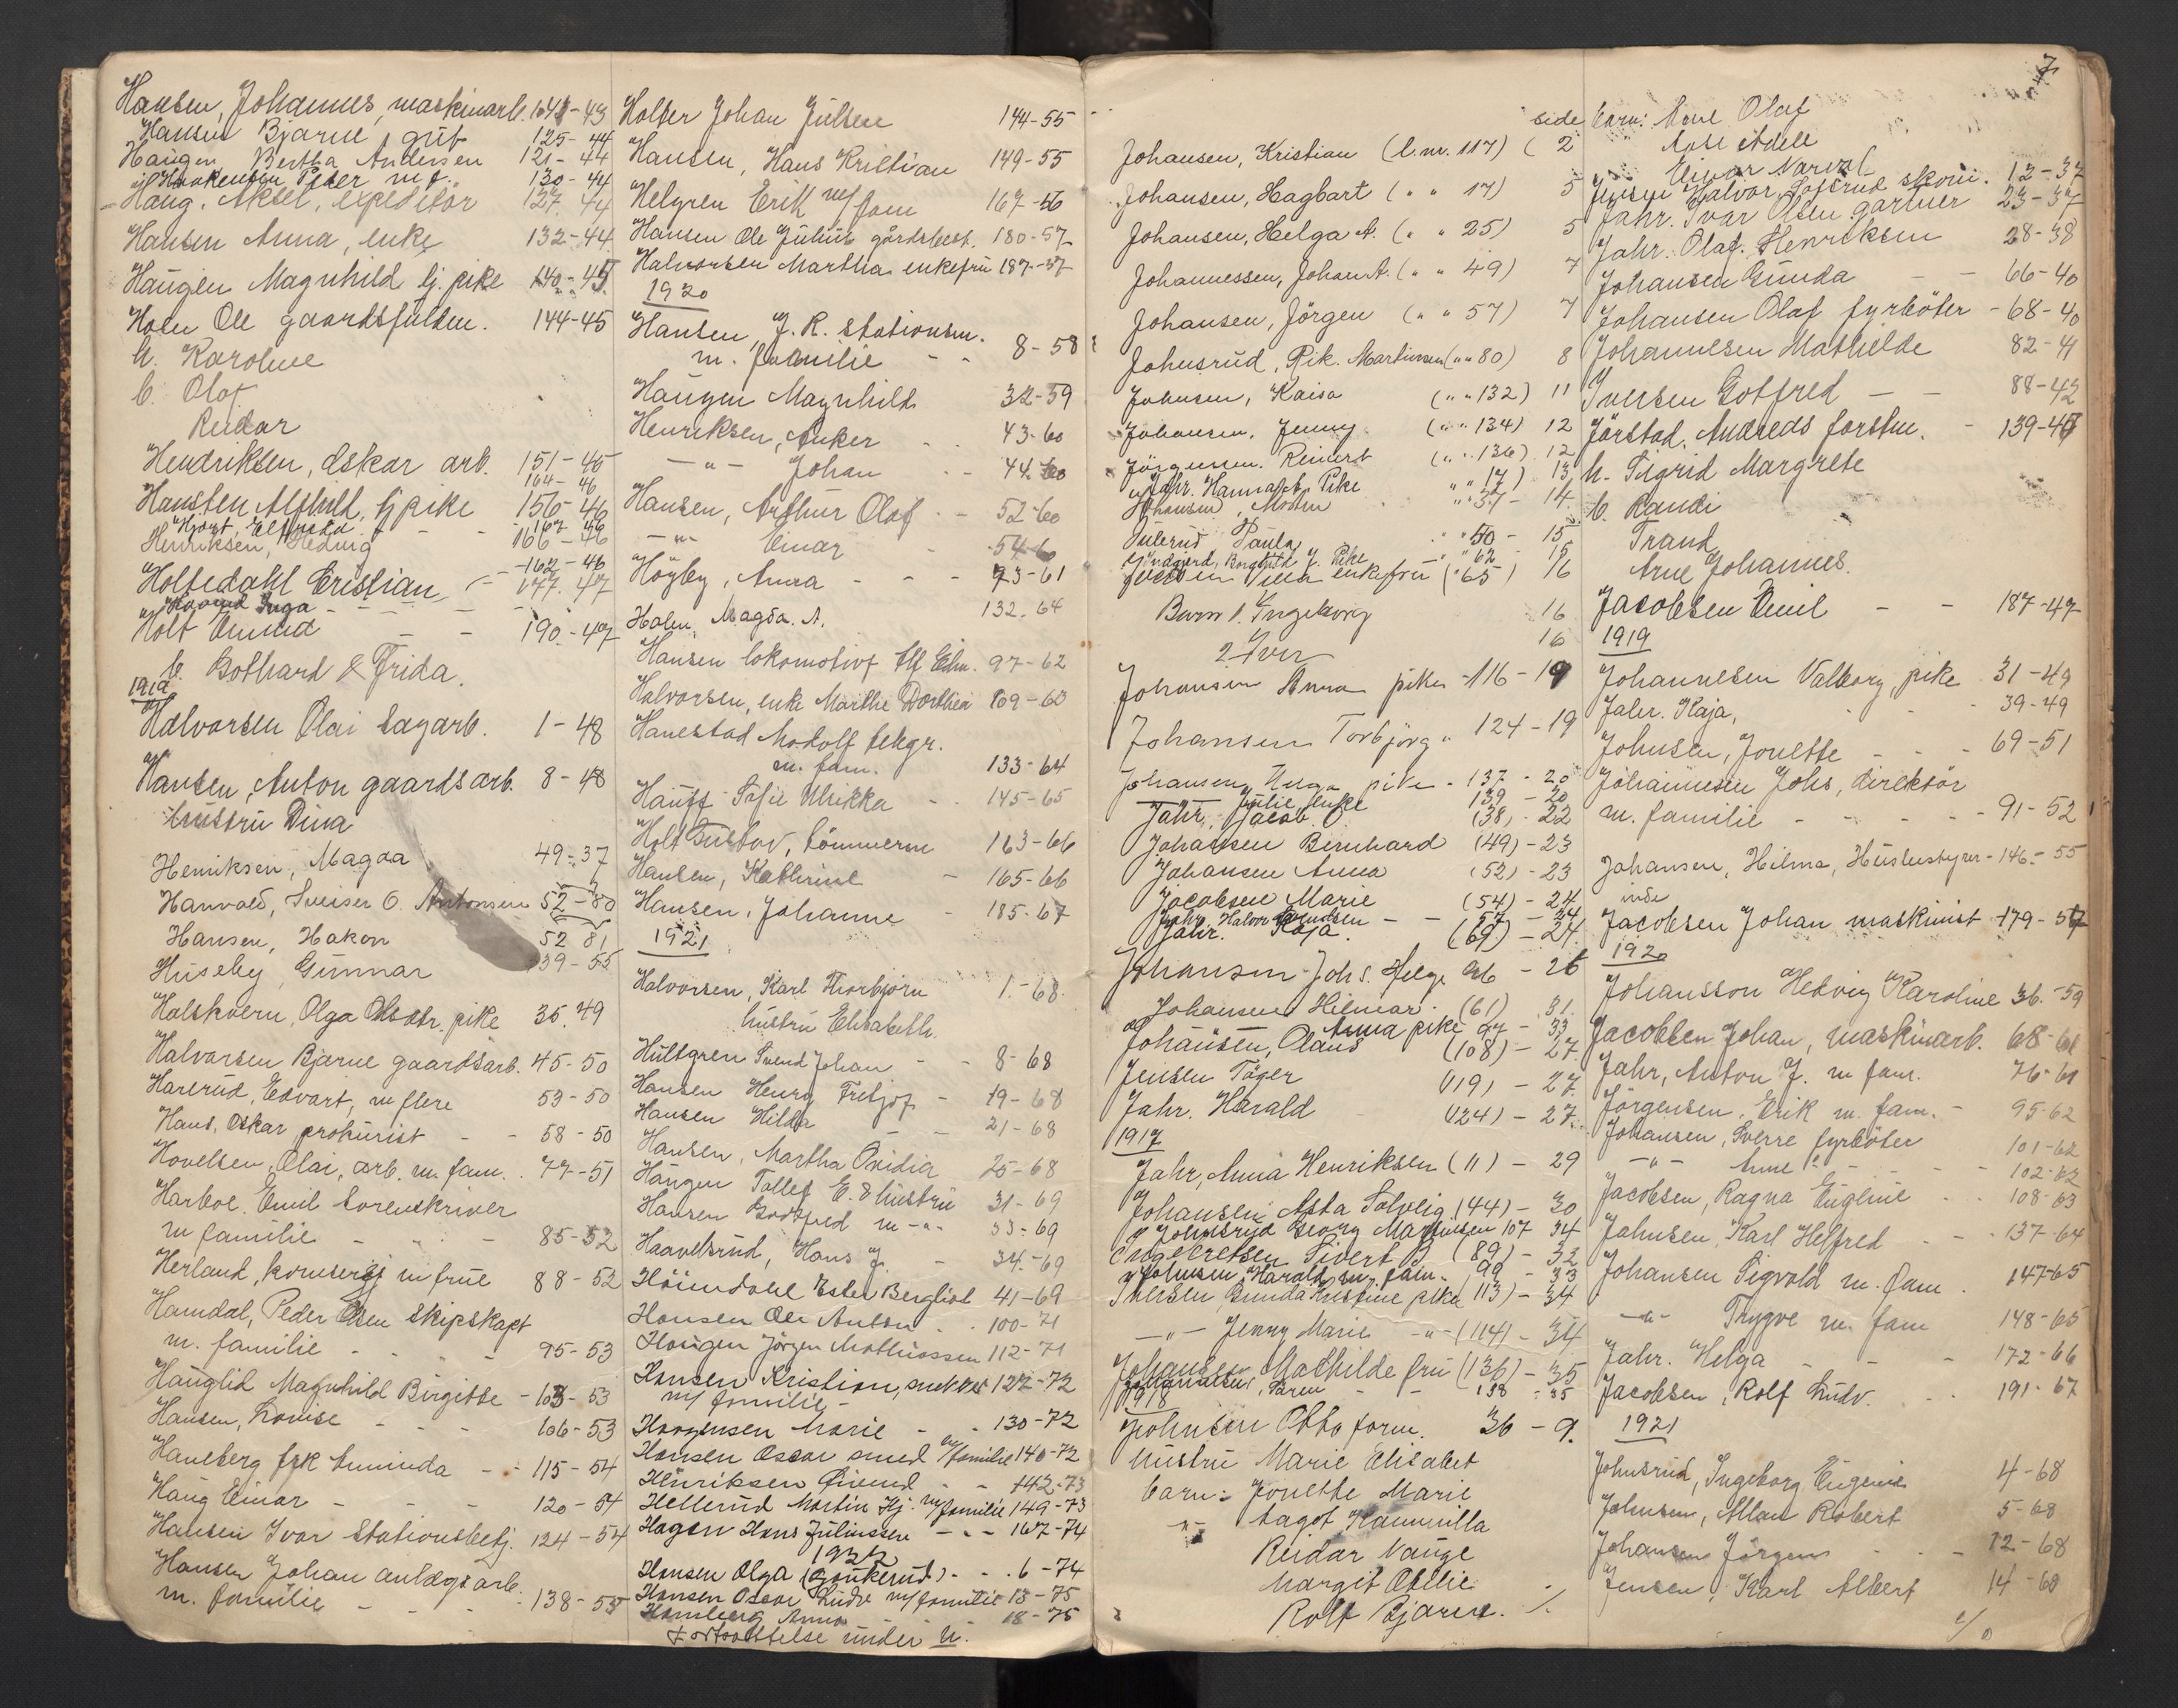 Hansen, Johannes, maskinarb. 164-43
Hansen Bjarne gut 125-44
Haugen Bertha Andersen 121-44
Haakensen Peter m.f. 130-44
Haug, Aksel, expeditör 127-44
Hansen Anna, enke 132-44
Haugen Magnhild tj. pike 140-45
Holm Ole gaardsfuldm. 144-45
h. Karoline
b. Olaf
Reidar
Hendriksen, Oskar arb. 151-45
164-46
Hansten Alfhild, tj pike 156-46
Hjort, Elfrida 167-46
Henriksen, Hedvig 166-46
162-46
Holtedahl Cristian 177-47
Inga
Holt Omund 190-47
b. Bothard & Frida.
1919
Halvorsen Olai sagarb. 1-48
Hansen, Anton gaardsarb. 8-48
hustru Dina
Henriksen, Magda 49-37
Hanvold, Sveiser O. Antonsen 52-80
Hansen, Hakon 52 81
Huseby Gunnar 139-55
Halskvern, Olga Olsdtr. pike 35-49
Halvorsen Bjarne gaardsarb. 45-50
Harerud, Edvart, m flere 53-50
Hans, Oskar prokurist - - 58-50
Hovelsen, Olai, arb. m. fam. 77-51
Harboe, Emil Sorenskriver
m familie - - - 85-52
Herland, konsersj m frue 88-52
Hamdal, Peder Olsen skipskapt
m. familie - - - 95-53
Hauglid Magnhild Birgitte - 103-53
Hansen, Louise - - 106-53
Haneberg frk Aminda - - 115-54
Haug Einar - - - 120-54
Hansen Ivar Stationsbetj. 124-54
Hansen Johan anlægsarb.
m. familie - - - 138-55
Holter Johan Julsen 144-55
Hansen, Hans Kristian 149-55
Helgren Erik m/fam 167-56
Hansen Ole Julius gårdsbest. 180-57
Halvorsen Martha enkefru 187-57
1920
Hansen J. R. stationsm.
m. familie - - 8-58
Haugen Magnhild 32-59
Henriksen, Anker - - 43-60
-"- Johan - - 44-60
Hansen, Arthur Olaf - - 52-60
-"- Einar - 54-60
Höyby, Anna - - - 93-61
Holm, Magda. A. 132-64
Hansen lokomotivf 97-62
Halvorsen, enke Marthe Dorthea 109-63
Hanestad Modolf telegr.
m. fam. 133-64
Hauff Sofie Ulrikka - - 145-65
Holt Gustav, tömmerm 163-66
Hansen, Kathrine - 165-66
Hansen, Johanne - 185-67
1921
Halvorsen, Karl Thorbjörn 1-68
hustru Elisabeth.
Hultgren Svend Johan - - 8-68
Hansen Henry Fritjof - 19-68
Hansen Hilda - - 21-68
Hansen, Martha Ovidia 25-68
Haugen Tollef E. & hustru 31-69
Hansen Godtfred m -"- 33-69
Haavelsrud, Hans J. - 34-69
Höiendahl Ester Bergliot 41-69
Hansen Ole Anton - - 100-71
Haugen Jörgen Mathiassen 112-71
Hansen Kristian, snekker 122-72
m/ familie -
Haagensen Marie - - 130-72
Hansen Oscar smed m/familie 140-72
Henriksen Öivind - - 142-73
Hellerud Martin Hj. m/familie 149-73
Hagen Hans Juliussen - - - 167-74
1922
Hansen Olga (Gaukerud) - - 6-74
Hansen Oscar Ludv m/familie 13-75
Hamberg Anna - - - 18-75
Fortsættelse under U.
side
Johansen, Kristian (l.nr. 117) ( 2
Johansen, Hagbart ( " " 17) 5
Johansen, Helga A. ( " " 25) 5
Johannessen, Johan A. ( " " 49) 7
Johansen, Jörgen ( " " 57) 7
Johnsrud, Pik. Martinsen ( " " 80) 8
Johnsen, Kaisa ( " " 132) 11
Johansen, Jenny ( " " 134) 12
Jörgensen. Reinert ( " " 136) 12
Jahr. Hanna A. Pike " " 17) 13
Johansen, Morten " " 37 - 14
Julerud Paula " " 50 - 15
Pike " " 62 - 15
Jensen enkefru (" 65) 16
Barn 1. Ingeborg 16
2. Iver 16
Johansen Anna pike -116-19
Johansen Torbjörg " 124-19
Johansen, Helga pike - 137-20
Julie enke 139-20
Jahr, Jacob O. (38)-22
Johansen Bernhard (49)-23
Johansen Anna (52)-23
Jacobsen Marie (54)-24
Jahr, Halvor - - 57-24
Jahr. Kaja. (69)-24
Johansen Johs. Helge 96-26
Johansen Hilmar (61) 31.
Anna pike 97-33
Johansen, Olaus (108)-27
Jensen Töger (119)-27
Jahr. Harald (124)-27
1917
Jahr, Anna Henriksen (11)-29
Johansen Asta Solveig (44)-30
Johnsrud Georg Martinsen 107 34
Ingebretsen Sivert B. (89)-32
Johnsen, Harald m. fam. 99-33
Iversen Gunda Kristine pike (113)-34
-"- Jenny Marie -"- (114)-34
Johansen Mathilde fru (136)-35
Johannesen, Bren - - 138-35
1918
Johnsen Otto form. 36-9.
hustru Marie Elisabet
barn: Jonette Marie
-"- Aagot Kammilla
Reidar Vauge
Margit Otilie
Rolf Bjarne. ./.
7
barn: Arne Olaf
Aase Adele
Einar Narval
Jensen Halvor skom. 12-37
Jahr. Ivar Olsen gartner 23-37
Jahr. Olaf. Henriksen 28-38
Johansen Gunda - - 66-40
Johansen Olaf fyrböter - 68-40
Johannesen Mathilde 82-41
Iversen Gotfred - - 88-42
Jörstad, Andreas forstm. - 139-45
h. Sigrid Margrete
b. Randi
Trand
Arne Johannes.
Jacobsen Emil - - 187-47
1919
Johannesen Valborg pike 31-49
Jahr. Kaja, - - - 39-49
Johnsen, Jonette - - - 69-51
Johannesen Johs, direktör
m. familie - - - - - 91-52
Johansen, Hilma, Husbestyrer- 146-55
inde
Jacobsen Johan maskinist 179-57
1920
Johansson Hedvig Karoline 36-59
Jacobsen Johan, maskinarb. 68-61
Jahr, Anton J. m fam. 76-61
Jörgensen, Erik m. fam. - 95-62
Johansen, Sverre fyrböter 101-62
-"- Anne - - - 102-62
Jacobsen, Ragna Eugline - - 108-63
Johnsen, Karl Helfred - - 137-64
Johansen Sigvald m. fam - 147-65
-"- Trygve m. fam 148-65
Jahr. Helga - - - 172-66
Jacobsen, Rolf Ludv. - - 191-67
1921
Johnsrud, Ingeborg Eugenie 4-68
Johnsen, Allan Robert 5-68
Johansen Jörgen - - - 12-68
Jensen, Karl Albert 14-68